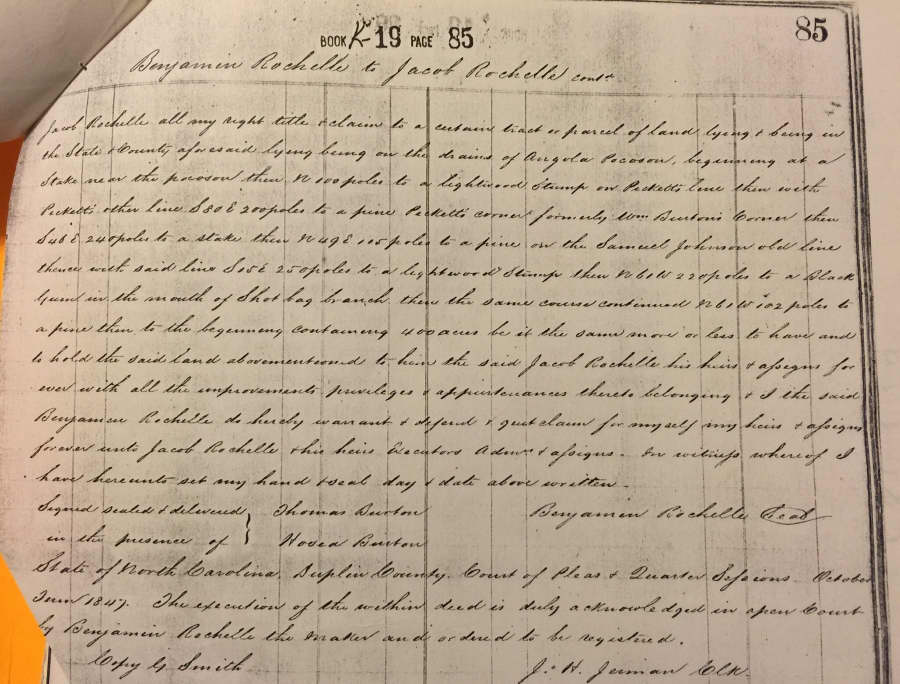 BOOK K 19 PAGE 85
85
Benjamin Rochelle to Jacob Rochelle cont'd
Jacob Rochelle all my right title & claim to a certain tract or parcel of land lying & being in
the State & County aforesaid lying being on the drains of Angola Pocoson, beginning at a
Stake near the pocoson then N 100 poles to a lightwood Stump on Pecketts line then with
Pecketts other line S 80 E 200 poles to a pine Pecketts corner formerly Wm Burton's Corner then
S 46 E 240 poles to a stake then N 49 E 115 poles to a pine on the Samuel Johnson old line
thence with said line S 15 E 250 poles to a lightwood Stump then N 60 W 220 poles to a Black
Gum in the mouth of Shot bag branch then the same course continued N 61 W 102 poles to
a pine then to the beginning containing 400 acres be it the same more or less to have and
to hold the said land abovementioned to him the said Jacob Rochelle his heirs & assigns for
ever with all the improvements privileges & appurtenances thereto belonging & I the said
Benjamin Rochelle do hereby warrant & defend & quit claim for myself my heirs & assigns
forever unto Jacob Rochelle & his heirs Executors Admrs & assigns. In witness whereof I
have hereunto set my hand & seal day & date above written.
Signed sealed & delivered } Thomas Burton Benjamin Rochelle Seal
in the presence of } Hosea Burton
State of North Carolina, Duplin County. Court of Pleas & Quarter Sessions October
Term 1847. The execution of the within deed is duly acknowledged in open Court
by Benjamin Rochelle the Maker and ordered to be registered.
Copy G Smith Js. H. Jerman Clk.